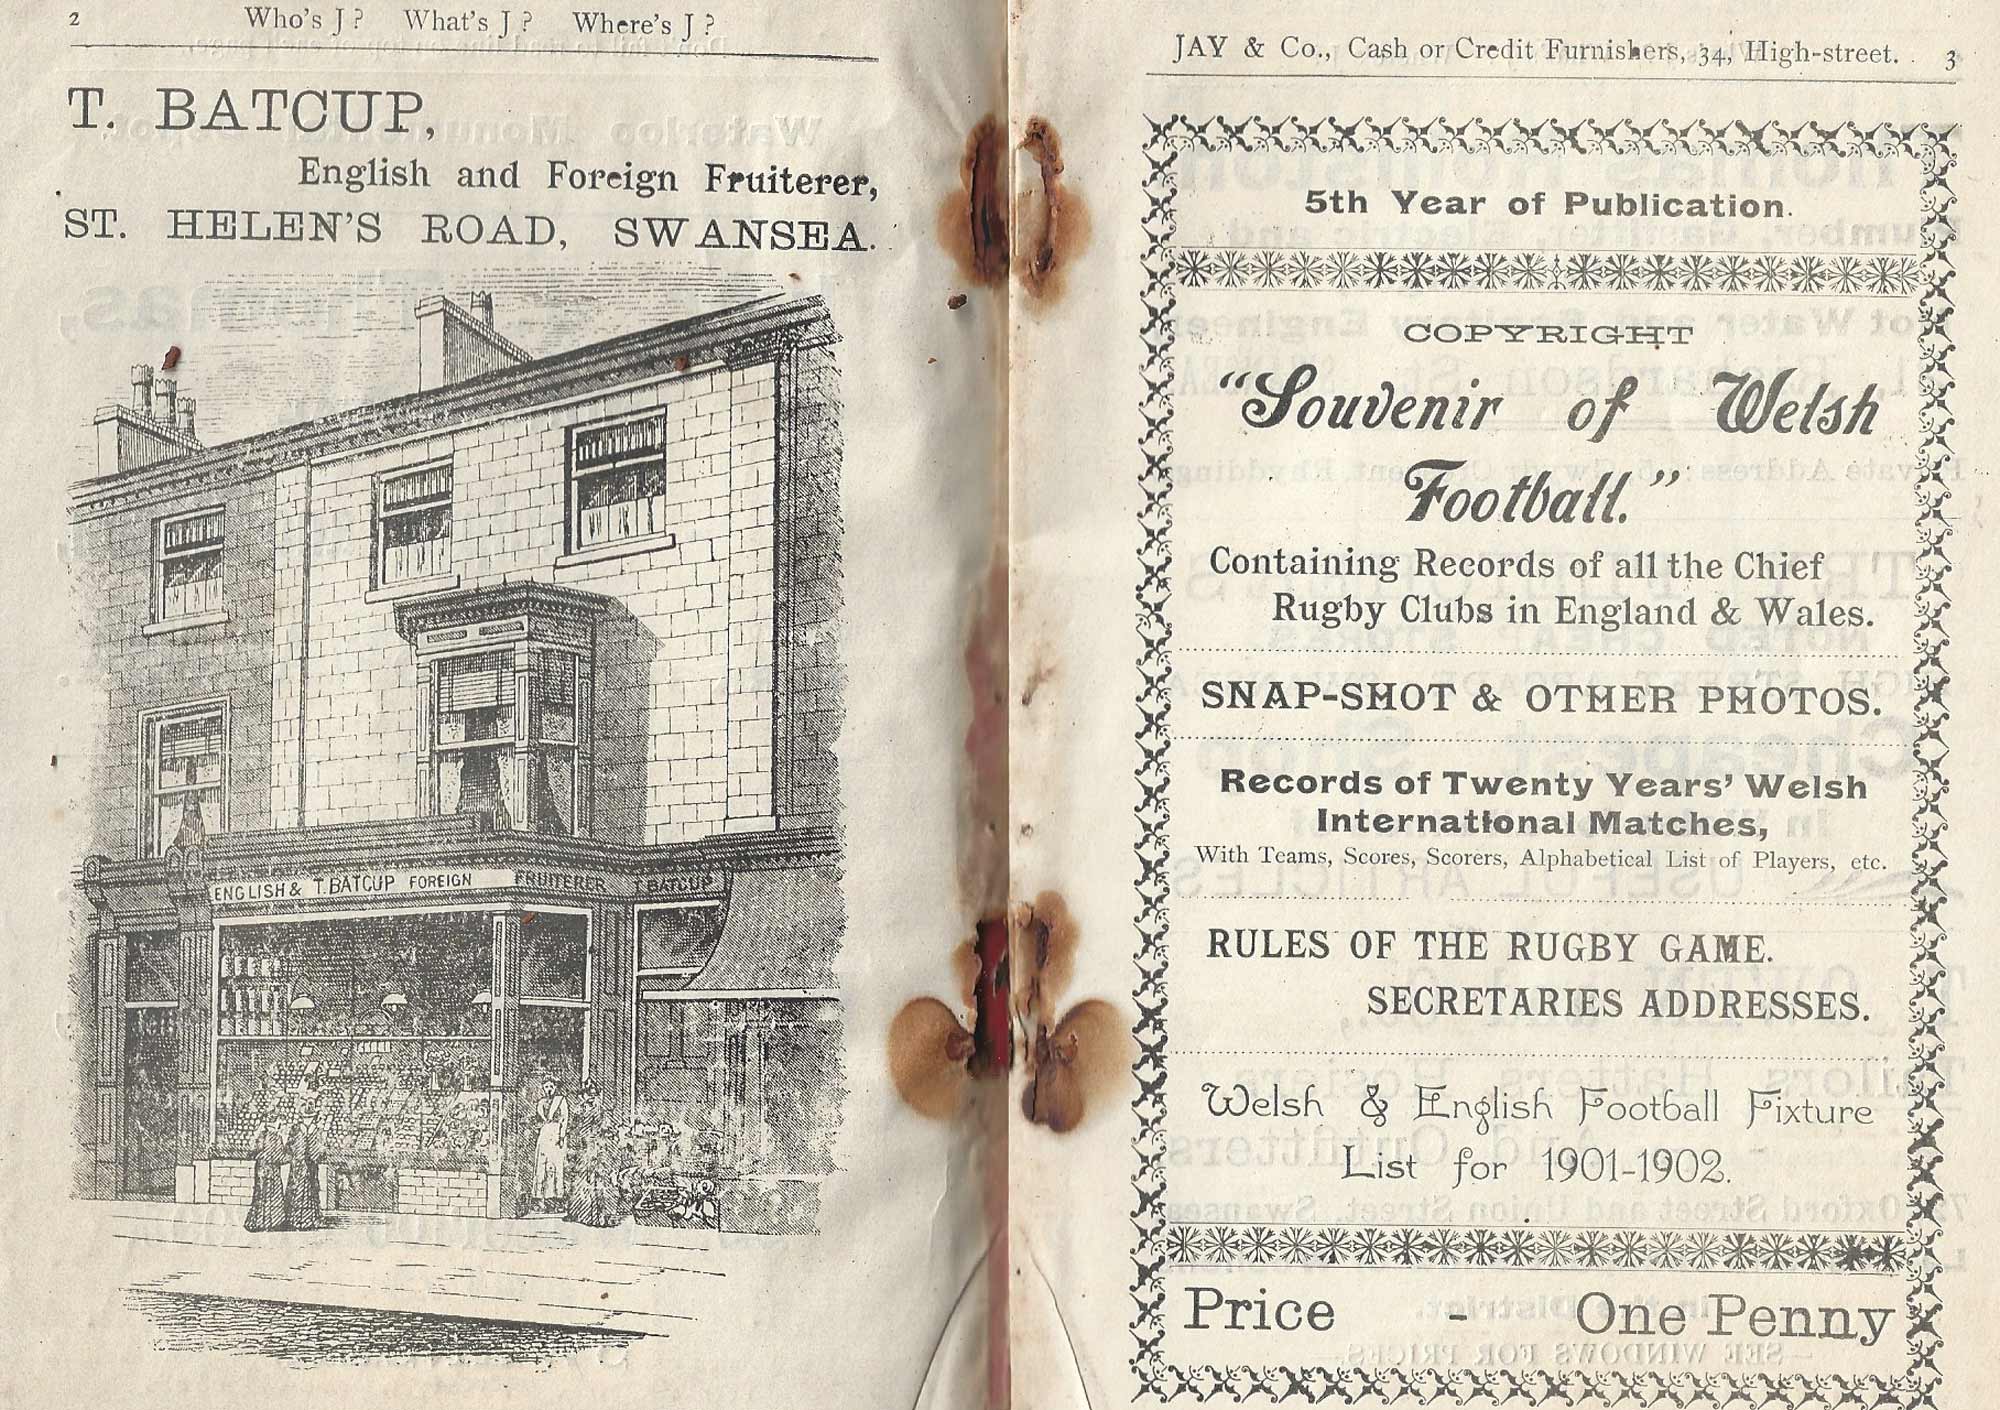 2 Who's J? What's J? Where's J?
T. BATCUP,
English and Foreign Fruiterer,
ST. HELEN'S ROAD, SWANSEA.
ENGLISH & T. BATCUP FOREIGN FRUITERER T. BATCUP
JAY & Co., Cash or Credit Furnishers, 34, High-street. 3
5th Year of Publication.
COPYRIGHT
"Souvenir of Welsh
Football."
Containing Records of all the Chief
Rugby Clubs in England & Wales.
SNAP-SHOT & OTHER PHOTOS.
Records of Twenty Years' Welsh
International Matches,
With Teams, Scores, Scorers, Alphabetical List of Players, etc.
RULES OF THE RUGBY GAME.
SECRETARIES ADDRESSES.
Welsh & English Football Fixture
List for 1901-1902.
Price - One Penny